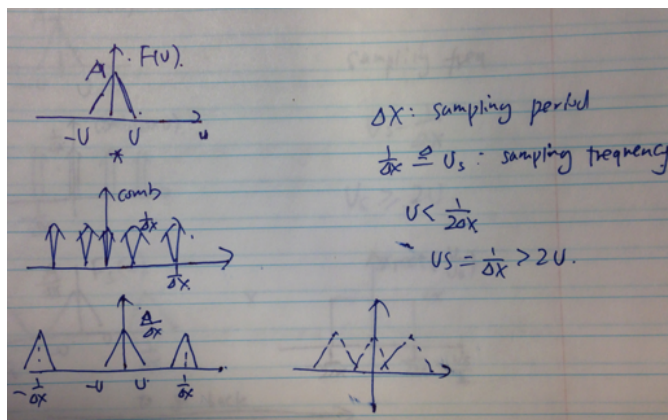 A F(u).
-U U u
*
comb
1/Δx
1/Δx
A/Δx
-1/Δx -U U 1/Δx
ΔX: sampling period
1/Δx ≜ Us: sampling frequency
U < 1/2Δx
US = 1/Δx > 2U.